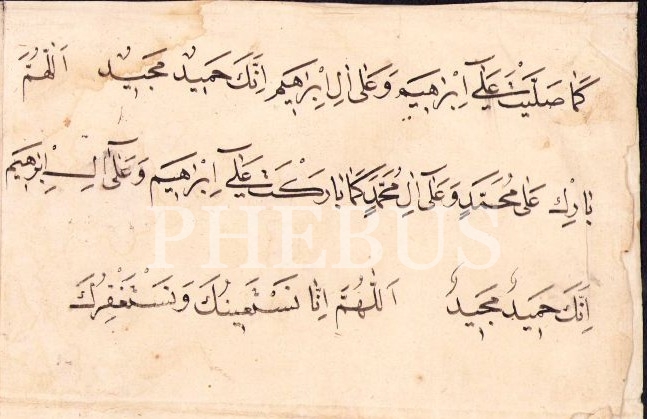 كَمَا صَلَّيْتَ عَلَىٰ اِبْرٰهِيمَ وَعَلٰى اٰلِ اِبْرٰهِيمَ اِنَّكَ حَمِيدٌ مَجِيدٌ اَللّٰهُمَّ
بٰارِكْ عَلٰى مُحَمَّدٍ وَعَلٰى اٰلِ مُحَمَّدٍ كَمٰا بٰارَكْتَ عَلٰى اِبْرٰهِيمَ وَعَلٰى اٰلِ اِبْرٰهِيمَ
PHEBUS
اِنَّكَ حَمِيدٌ مَجِيدٌ اَللّٰهُمَّ اِنّٰا نَسْتَعِينُكَ وَنَسْتَغْفِرُكَ